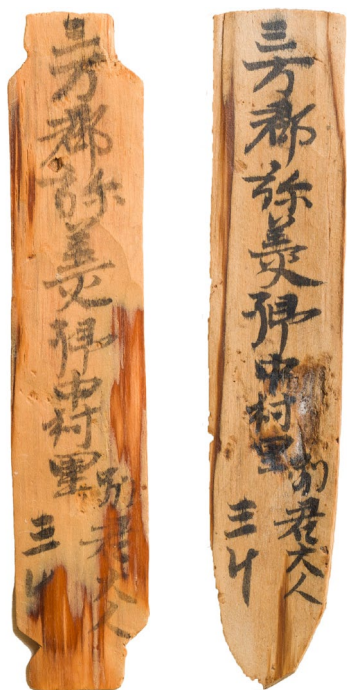 三方郡弥美郷中村里
別君大人
三斗
三方郡弥美郷中村里
別君大人
三斗